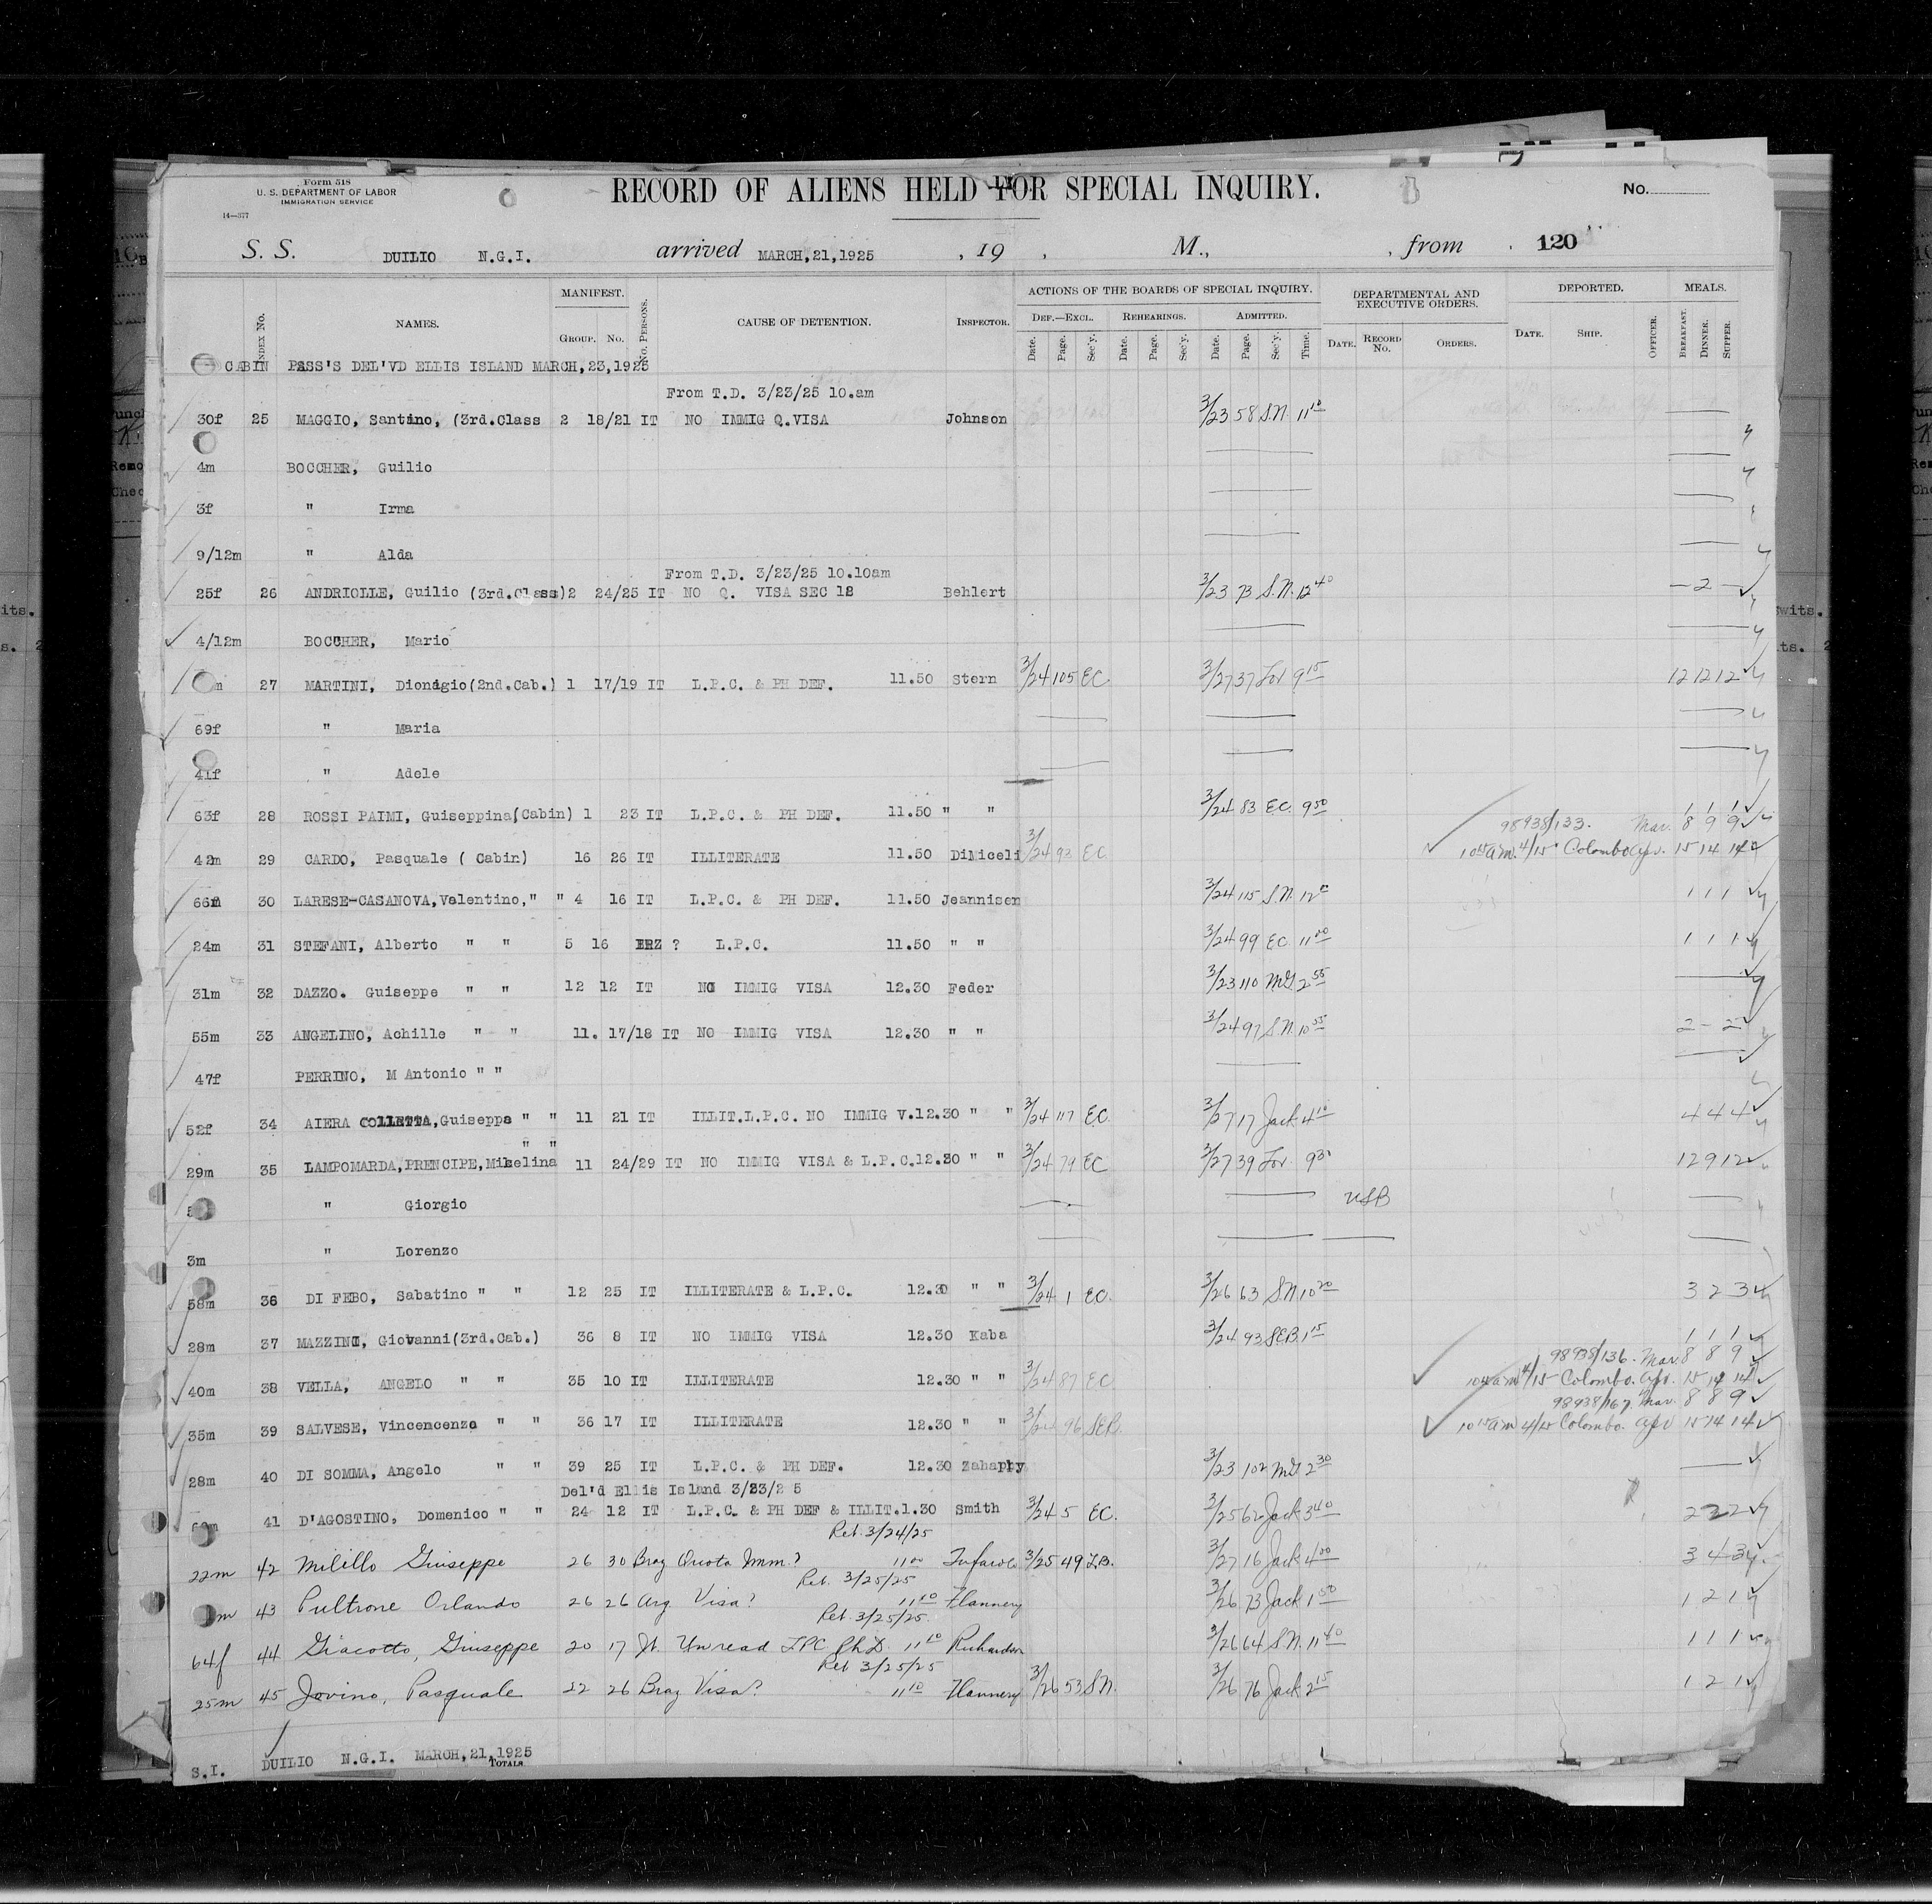 Form 518
U. S. DEPARTMENT OF LABOR
IMMIGRATION SERVICE
14—377
RECORD OF ALIENS HELD FOR SPECIAL INQUIRY.
No.
S. S. DUILIO N.G.I. arrived MARCH,21,1925 , 19 , M., , from 120
INDEX No. NAMES. MANIFEST. GROUP. No. No. PERSONS. CAUSE OF DETENTION. INSPECTOR. ACTIONS OF THE BOARDS OF SPECIAL INQUIRY. DEF.—EXCL. Date. Page. Sec'y. REHEARINGS. Date. Page. Sec'y. ADMITTED. Date. Page. Sec'y. Time. DEPARTMENTAL AND EXECUTIVE ORDERS. DATE. RECORD No. ORDERS. DEPORTED. DATE. SHIP. OFFICER. MEALS. BREAKFAST. DINNER. SUPPER.
CABIN PASS'S DEL'VD ELLIS ISLAND MARCH,23,1925
From T.D. 3/23/25 10.am
30f 25 MAGGIO, Santino, (3rd.Class 2 18/21 IT NO IMMIG Q.VISA Johnson 3/23 58 S.N. 11 10
4m BOCCHER, Guilio
3f " Irma
9/12m " Alda
From T.D. 3/23/25 10.10am
25f 26 ANDRIOLLE, Guilio (3rd.Class)2 24/25 IT NO Q. VISA SEC 18 Behlert 3/23 73 S.N. 12 40 — 2 —
4/12m BOCCHER, Mario
m 27 MARTINI, Dionigio(2nd.Cab.) 1 17/19 IT L.P.C. & PH DEF. 11.50 Stern 3/24 105 EC 3/27 37 9 15 12 12 12
69f " Maria
41f " Adele
63f 28 ROSSI PAIMI, Guiseppina(Cabin) 1 23 IT L.P.C. & PH DEF. 11.50 " " 3/24 83 E.C. 9 50 1 1 1
98938/133. Mar. 8 9 9
42m 29 CARDO, Pasquale ( Cabin) 16 26 IT ILLITERATE 11.50 DiMiceli 3/24 93 EC 10 15 am. 4/15 Colombo apr. 15 14 14
66m 30 LARESE-CASANOVA,Valentino," " 4 16 IT L.P.C. & PH DEF. 11.50 Jeannisen 3/24 115 S.N. 12 1 1 1
24m 31 STEFANI, Alberto " " 5 16 ? L.P.C. 11.50 " " 3/24 99 EC 11 00 1 1 1
31m 32 DAZZO. Guiseppe " " 12 12 IT NO IMMIG VISA 12.30 Feder 3/23 110 2 55
55m 33 ANGELINO, Achille " " 11. 17/18 IT NO IMMIG VISA 12.30 " " 3/24 97 S.N. 10 55 2 - 2
47f PERRINO, M Antonio " "
52f 34 AIERA COLLETTA,Guiseppa " " 11 21 IT ILLIT.L.P.C. NO IMMIG V.12.30 " " 3/24 117 E.C. 3/27 17 Jack 4 10 4 4 4
" "
29m 35 LAMPOMARDA,PRENCIPE,Mihelina 11 24/29 IT NO IMMIG VISA & L.P.C.12.30 " " 3/24 79 EC 3/27 39 9 30 12 9 12
" Giorgio USB
3m " Lorenzo
58m 36 DI FEBO, Sabatino " " 12 25 IT ILLITERATE & L.P.C. 12.30 " " 3/24 1 EC. 3/26 63 SN 10 20 3 2 3
28m 37 MAZZINI, Giovanni(3rd.Cab.) 36 8 IT NO IMMIG VISA 12.30 Kaba 3/24 93 SEB. 1 15 1 1 1
98938/136. Mar. 8 8 9
40m 38 VELLA, ANGELO " " 35 10 IT ILLITERATE 12.30 " " 3/24 87 EC 4/15 Colombo. apr. 15 14 14
98938/167. Mar. 8 8 9
35m 39 SALVESE, Vincencenzo " " 36 17 IT ILLITERATE 12.30 " " 3/24 96 SEB. 10 15 am 4/15 Colombo. apr 15 14 14
28m 40 DI SOMMA, Angelo " " 39 25 IT L.P.C. & PH DEF. 12.30 Zahaphy 3/23 102 2 30
Del'd Ellis Island 3/23/25
41 D'AGOSTINO, Domenico " " 24 12 IT L.P.C. & PH DEF & ILLIT.1.30 Smith 3/24 5 EC. 3/25 62 Jack 3 40 2 2 2
Ret. 3/24/25
22m 42 Milillo Giuseppe 26 30 Braz Quota Imm.? 11 00 Tufarolo 3/25 49 L.B. 3/27 16 Jack 4 00 3 4 3
Ret. 3/25/25
m 43 Pultrone Orlando 26 26 Arg Visa? 11 10 Flannery 3/26 73 Jack 1 50 1 2 1
Ret. 3/25/25.
64f 44 Giacotto, Giuseppe 20 17 It. Unread LPC. Ph.D. 11 10 Richardson 3/26 64 S.N. 11 40 1 1 1
Ret 3/25/25
25m 45 Jovino, Pasquale 22 26 Braz Visa? 11 10 Flannery 3/26 53 S.N. 3/26 76 Jack 2 15 1 2 1
S.I. DUILIO N.G.I. MARCH,21,1925
TOTALS